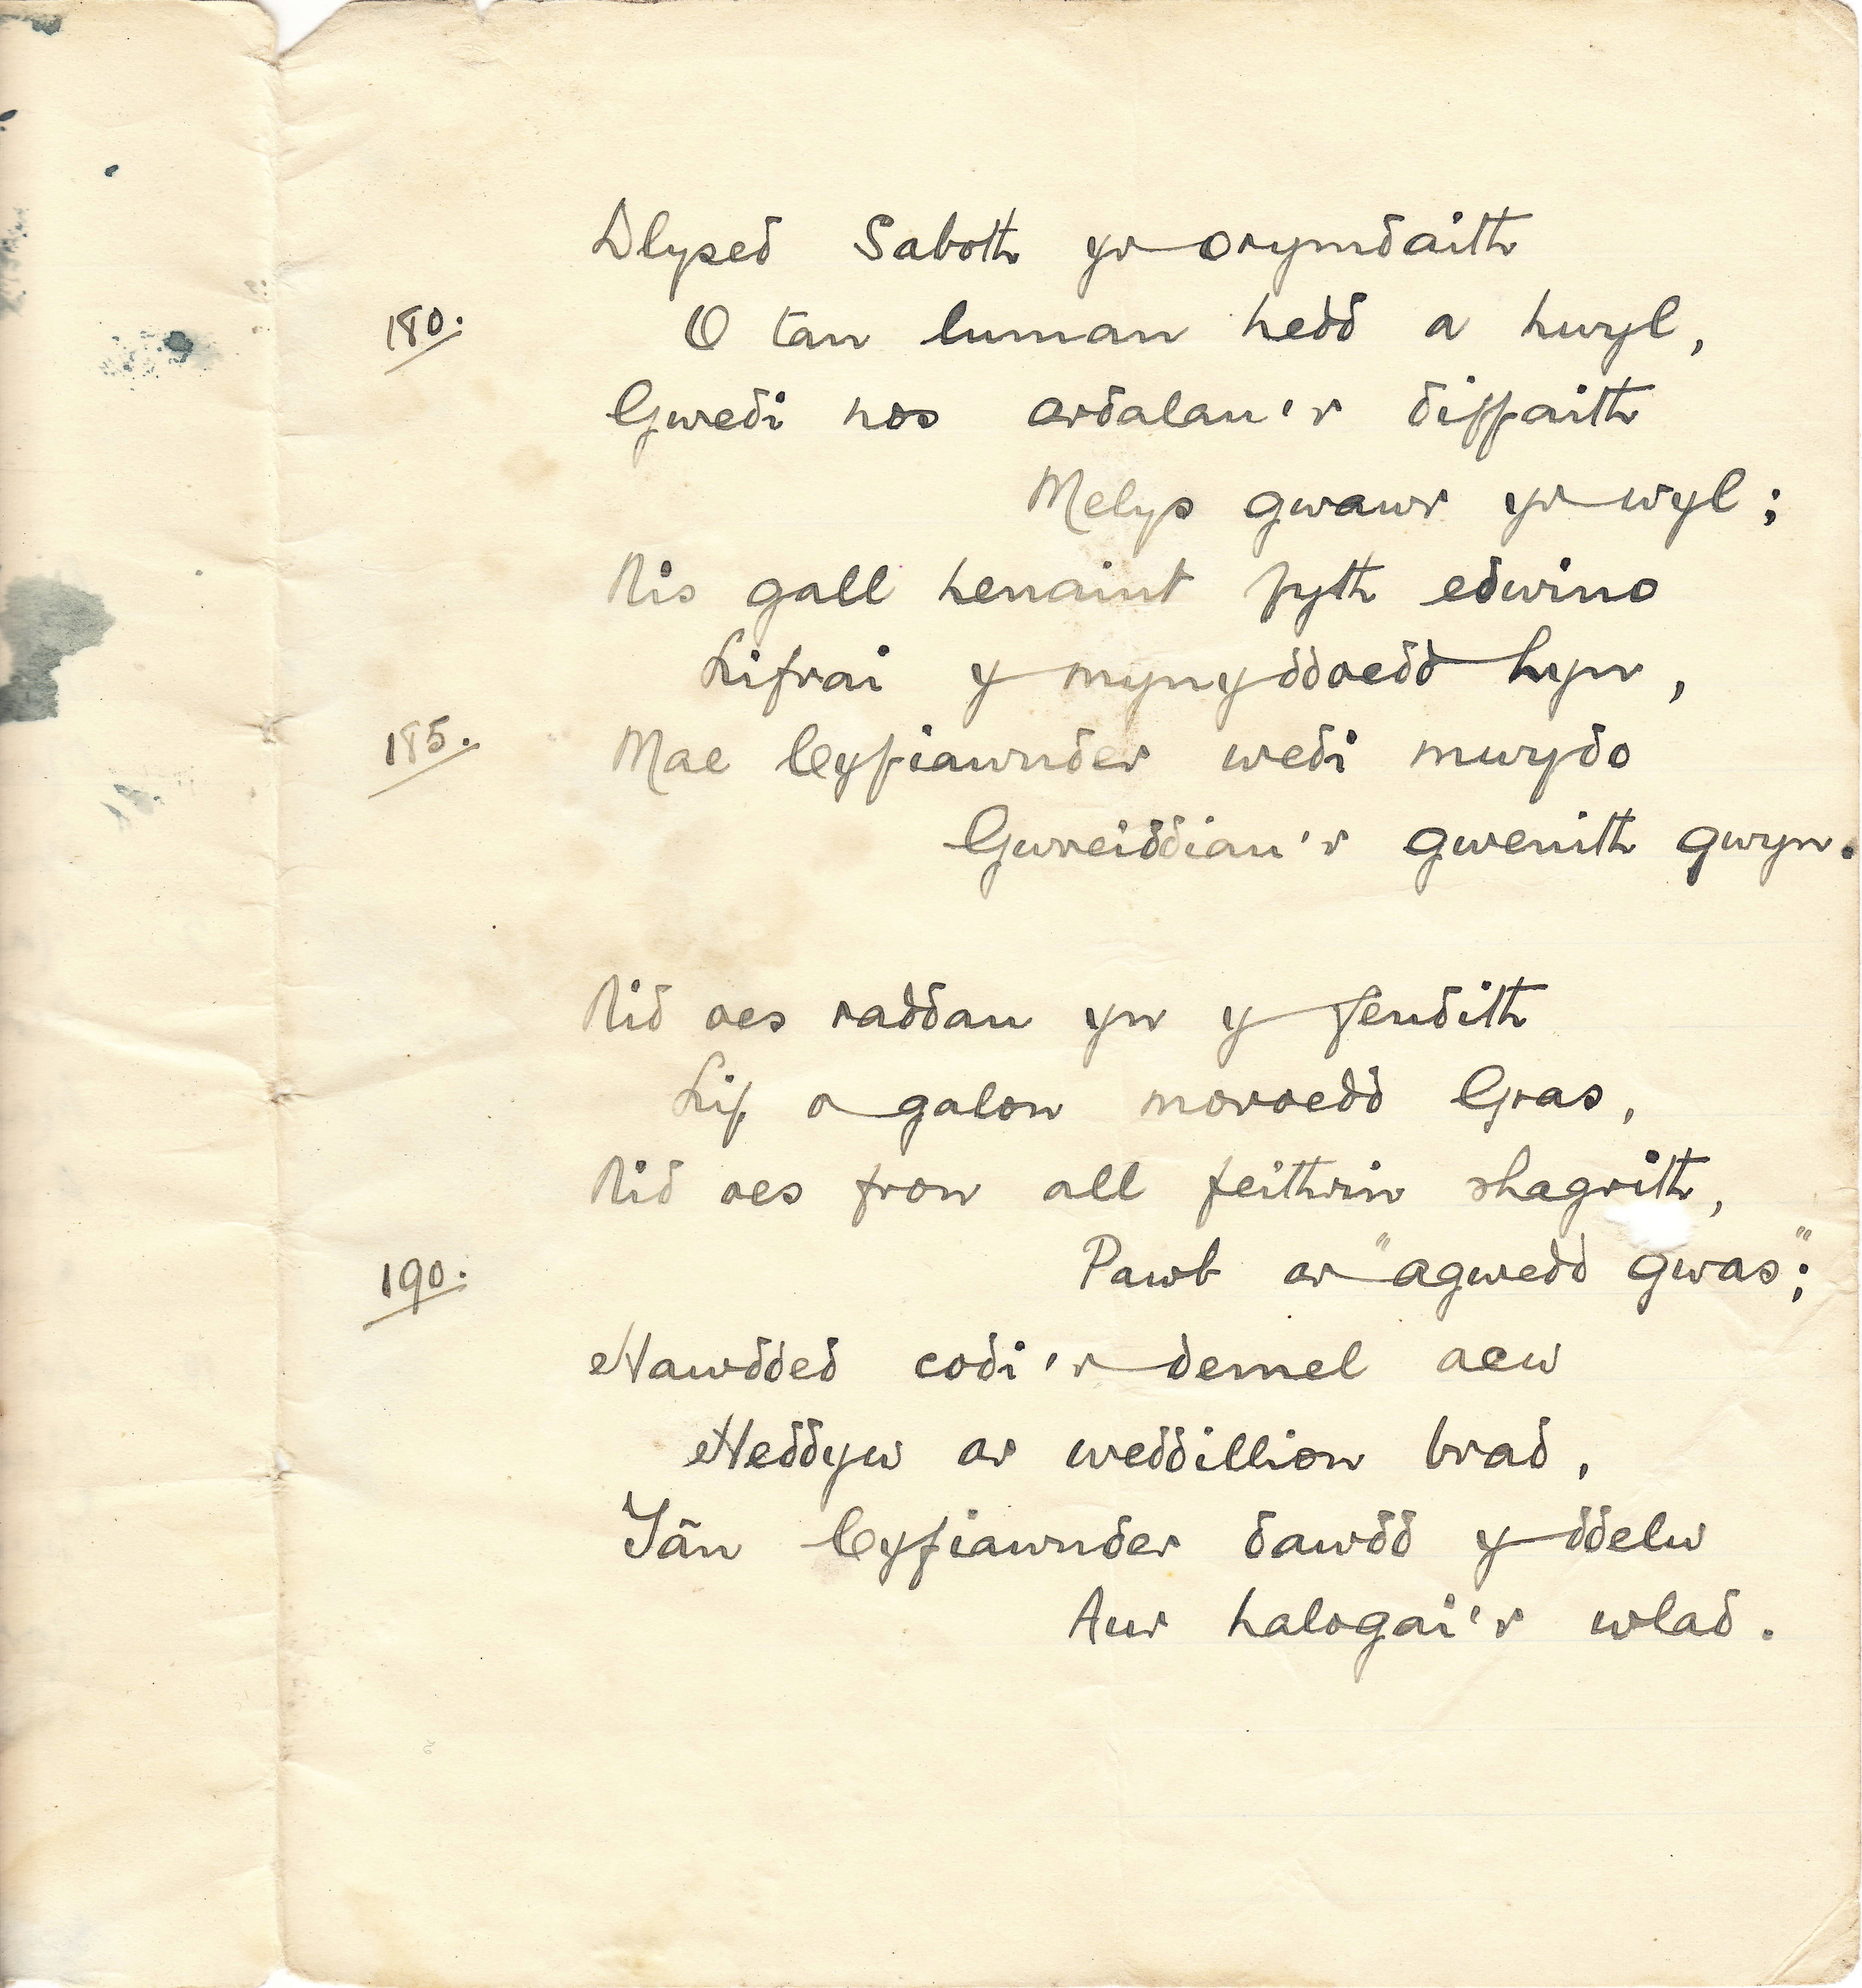 Dlysed Saboth yr orymdaith
180. O tan luman hedd a hwyl,
Gwedi nos ardalau'r diffaith
Melys gwawr yr wyl;
Nis gall henaint fyth edwino
Lifrai y mynyddoedd hyn,
185. Mae Cyfiawnder wedi mwydo
Gwreiddiau'r gwenith gwyn.
Nid oes raddau yn y fendith
Lif o galon moroedd Gras,
Nid oes fron all feithrin rhagrith,
190. Pawb ar "agwedd gwas";
Hawdded codi'r demel acw
Heddyw ar weddillion brad,
Tân Cyfiawnder dawdd y ddelw
Aur halogai'r wlad.